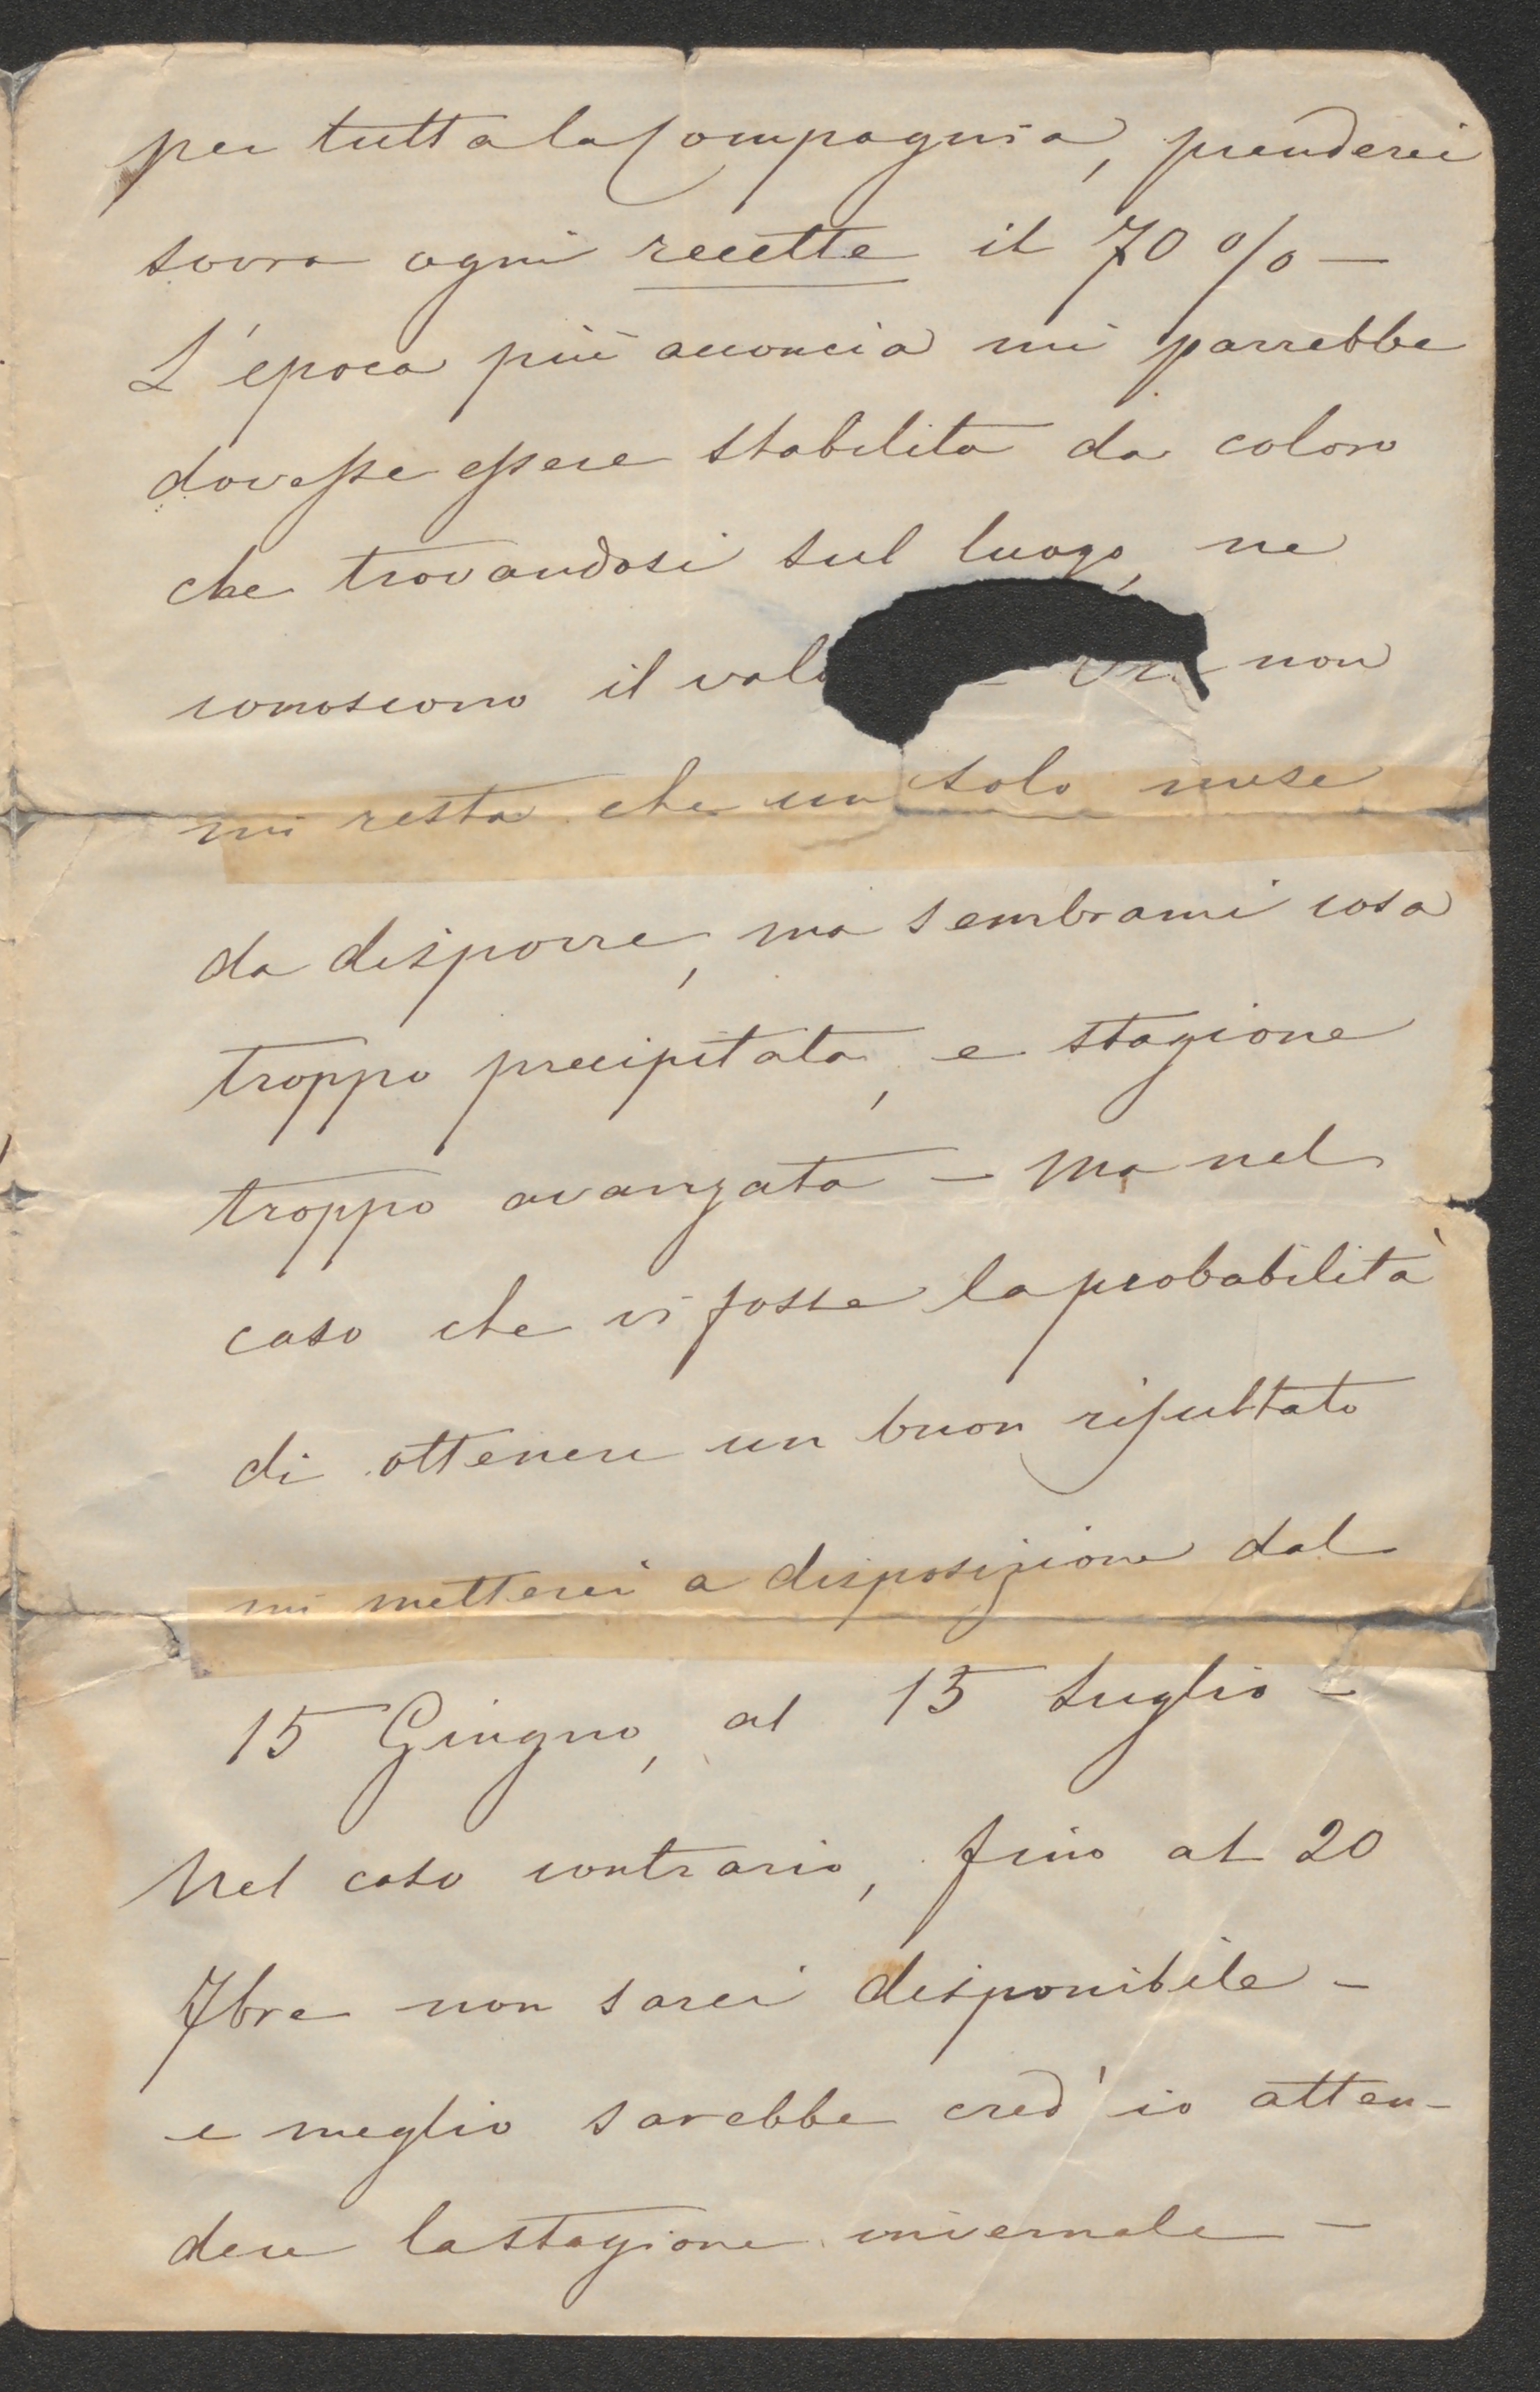 per tutta la Compagnia, prenderei
sovra ogni recette il 70 % —
L'epoca più acconcia mi parrebbe
dovesse essere stabilita da coloro
che trovandosi sul luogo, ne
conoscono il valo — non
mi resta che un solo mese
da disporre, ma sembrami cosa
troppo precipitata, e stagione
troppo avanzata — Ma nel
caso che vi fosse la probabilità
di ottenere un buon risultato
mi metterei a disposizione dal
15 Giugno, al 15 Luglio —
Nel caso contrario, fino al 20
7bre non sarei disponibile —
e meglio sarebbe cred'io atten-
dere la stagione invernale —